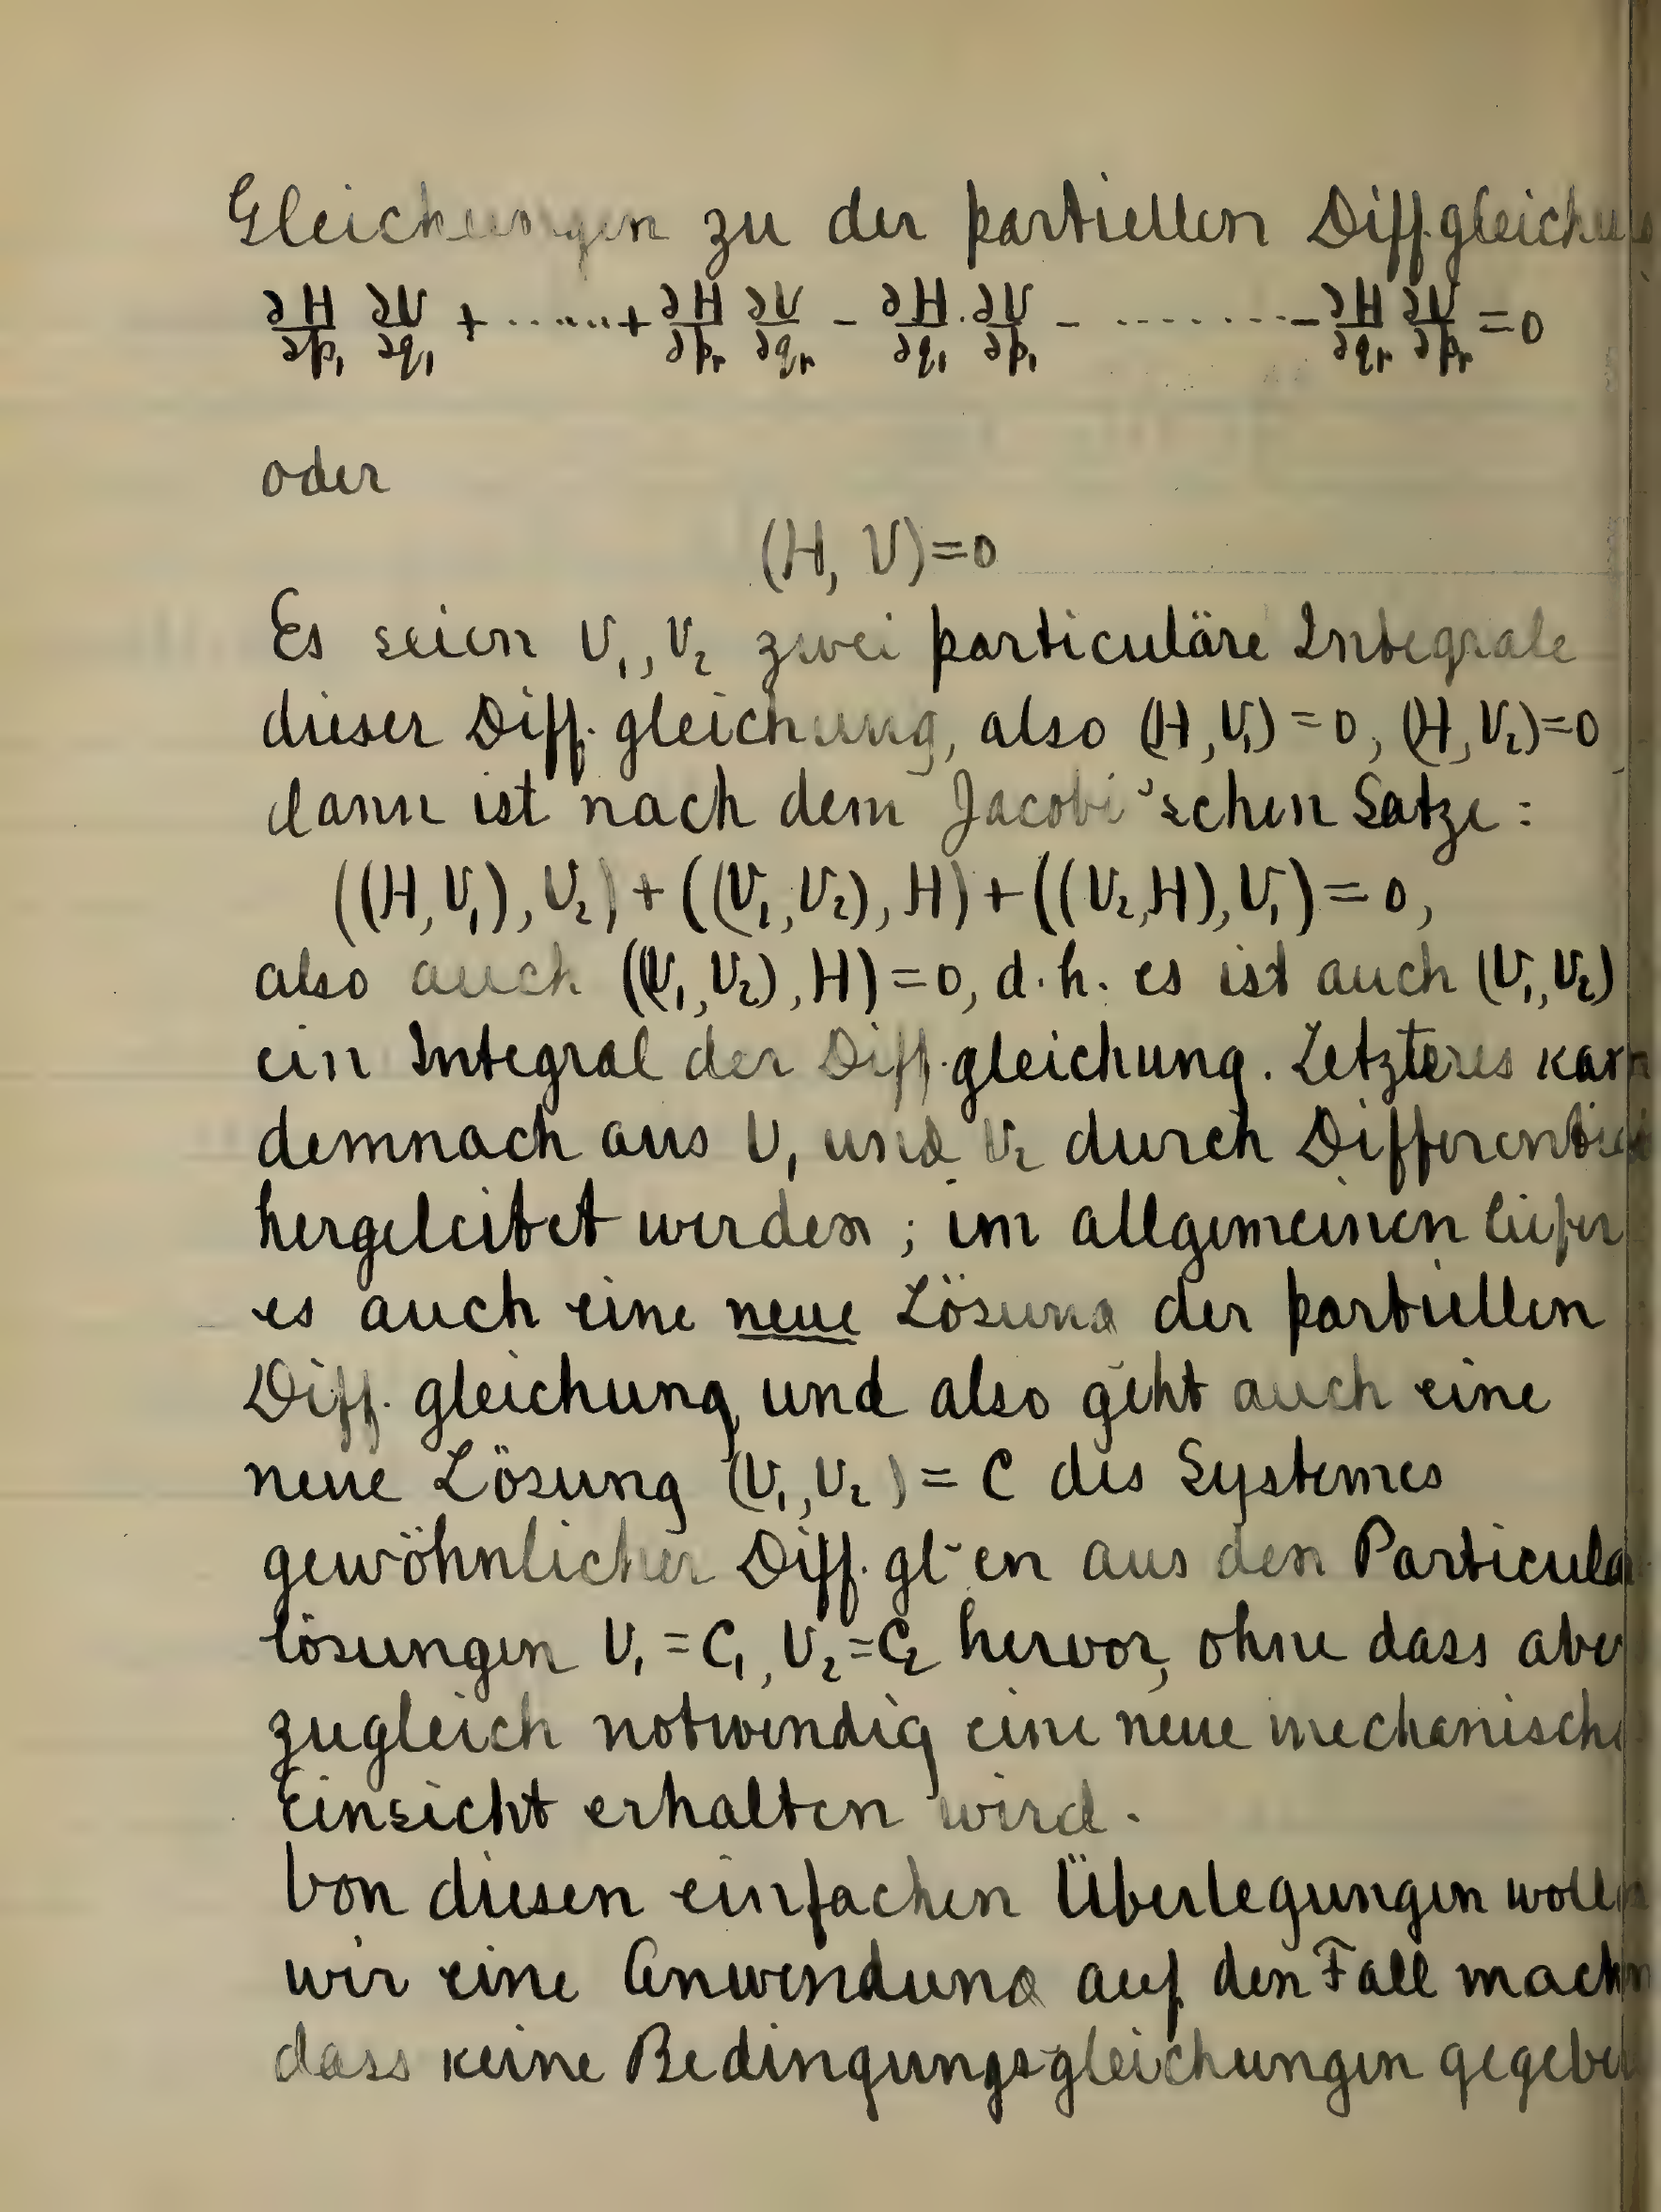 Gleichungen zu der partiellen Diff.gleichung
∂H/∂p₁ ∂V/∂q₁ + ...... + ∂H/∂pᵣ ∂V/∂qᵣ - ∂H/∂q₁ · ∂V/∂p₁ - ........ - ∂H/∂qᵣ ∂V/∂pᵣ = 0
oder
(H, V)=0
Es seien V₁, V₂ zwei particuläre Integrale
dieser Diff. gleichung, also (H,V₁) = 0, (H,V₂)=0
dann ist nach dem Jacobi'schen Satze:
((H,V₁), V₂) + ((V₁,V₂), H) + ((V₂,H),V₁) = 0,
also auch ((V₁,V₂), H) = 0, d.h. es ist auch (V₁,V₂)
ein Integral der Diff.gleichung. Letzteres kann
demnach aus V₁ und V₂ durch
hergeleitet werden; im allgemeinen liefer
es auch eine neue Lösung der partiellen
Diff. gleichung und also geht auch eine
neue Lösung (V₁,V₂) = C des Systemes
gewöhnlicher Diff.gl-en aus den Particula
lösungen V₁ = C₁, V₂ = C₂ hervor, ohne dass aber
zugleich notwendig eine neue mechanische
Einsicht erhalten wird.
Von diesen einfachen Überlegungen wollen
wir eine Anwendung auf den Fall machen
dass keine Bedingungsgleichungen gegeben